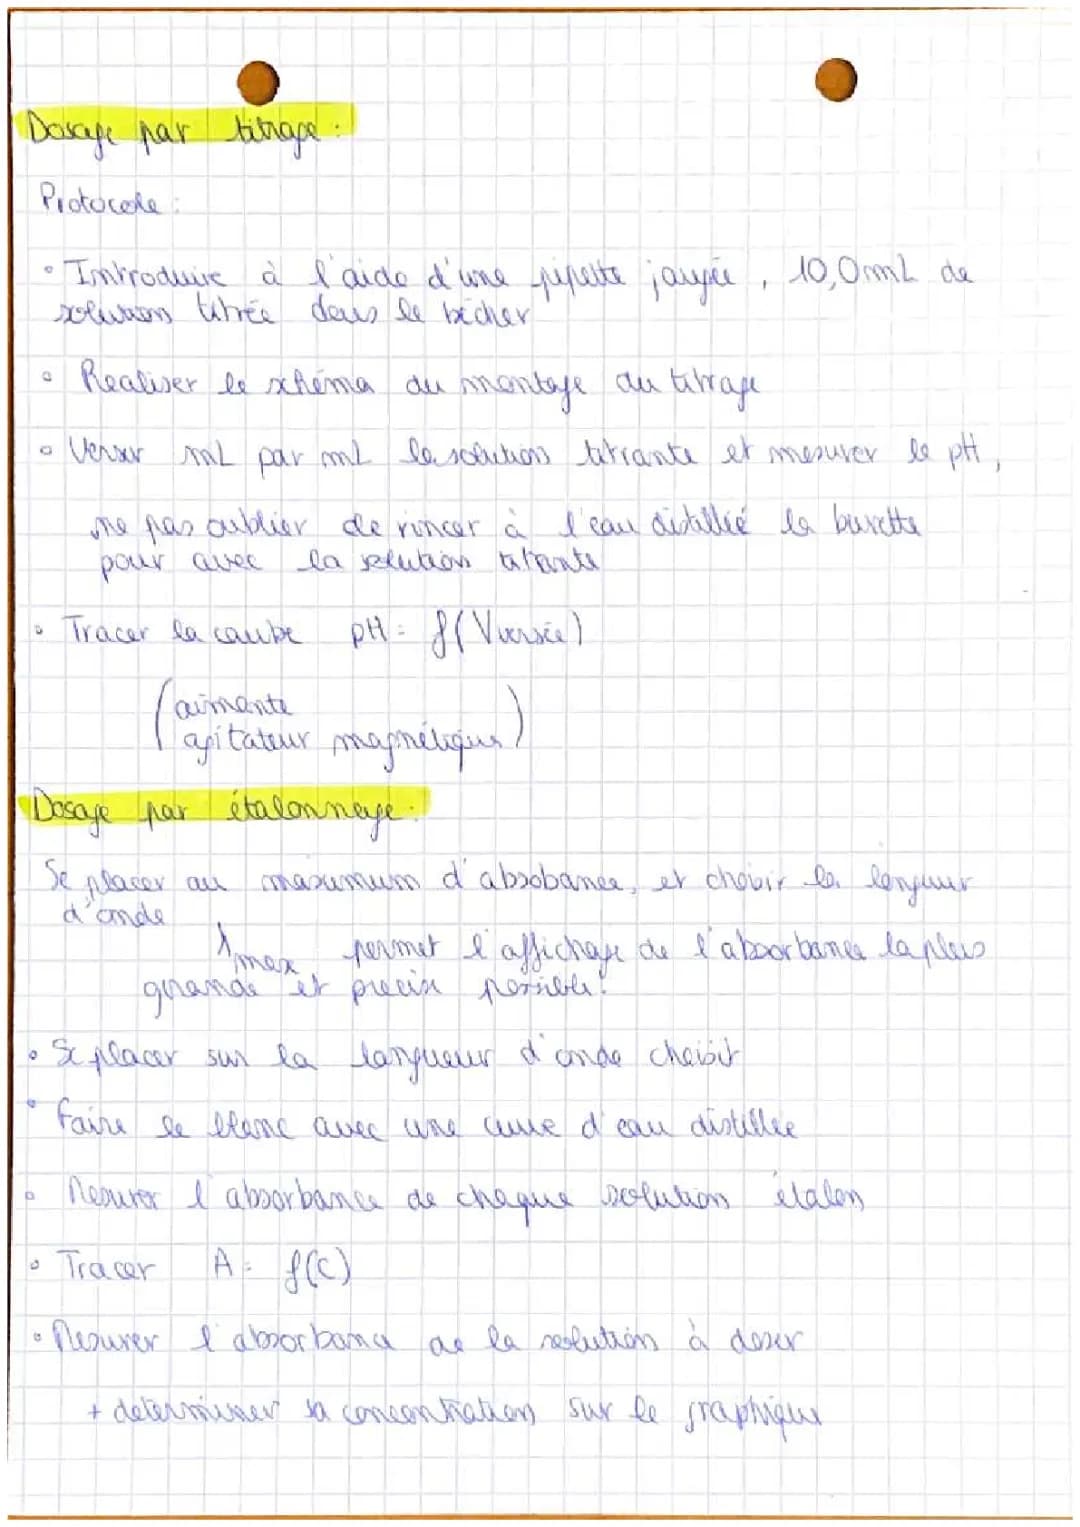 Dosage par titrage :
Protocole :
• Introduire à l'aide d'une pipette jaugée, 10,0 mL de
solution titrée dans le bécher
• Realiser le schéma du montage du titrage
• Verser mL par mL la solution titrante et mesurer le pH,
ne pas oublier de rincer à l'eau distillé la burette
pour avec la solution titrante
• Tracer la courbe pH = f(Vversée)
(aimante
agitateur magnétique)
Dosage par étalonnage :
Se placer au maximum d'absobance, et choisir la longueur
d'onde
λmax permet l'affichage de l'absorbance la plus
grande et precise possible!
• Se placer sur la longueur d'onde choisit
• Faire le blanc avec une cuve d'eau distillée
• Mesurer l'absorbance de chaque solution étalon
• Tracer A = f(C)
• Mesurer l'absorbance de la solution à doser
+ determiner sa concentration sur le graphique